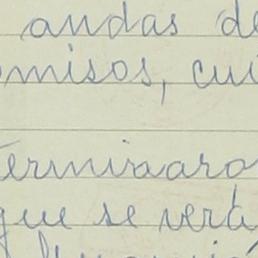 andas de
omisos, cui
terminaaro
que se verá